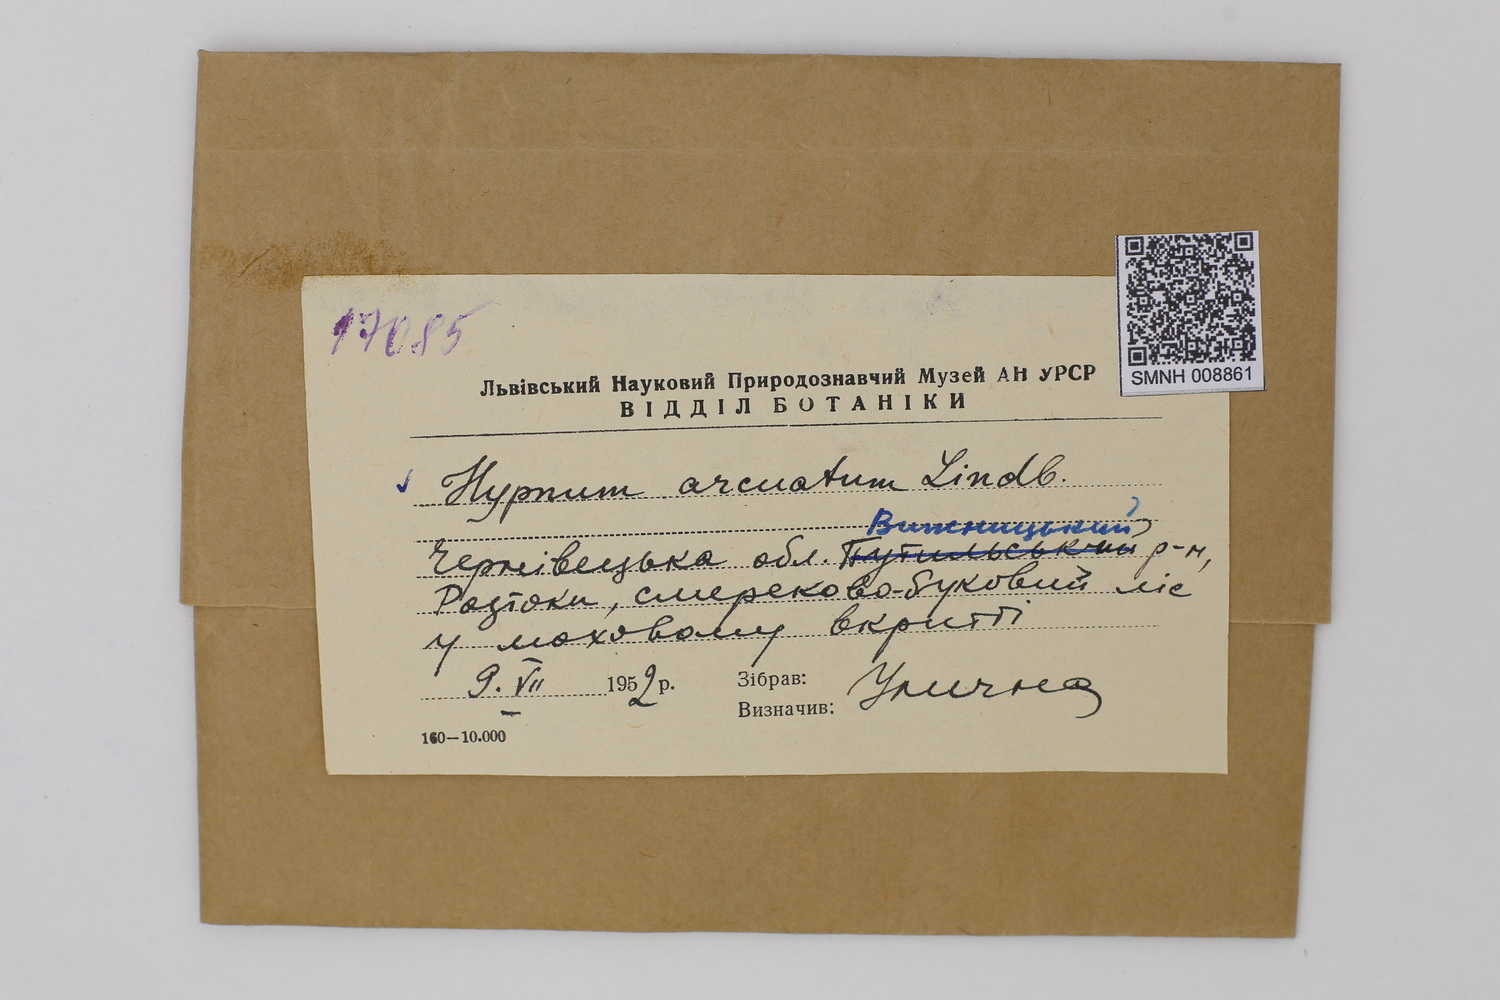 17085
SMNH 008861
Львівський Науковий Природознавчий Музей АН УРСР
ВІДДІЛ БОТАНІКИ
Hypnum arcuatum Lindb.
Вижницький
Чернівецька обл. Путильський р-н,
Розтоки, смереково-буковий ліс
у моховому вкритті
9. VII 1952 р.
Зібрав: Улична
Визначив:
160—10.000